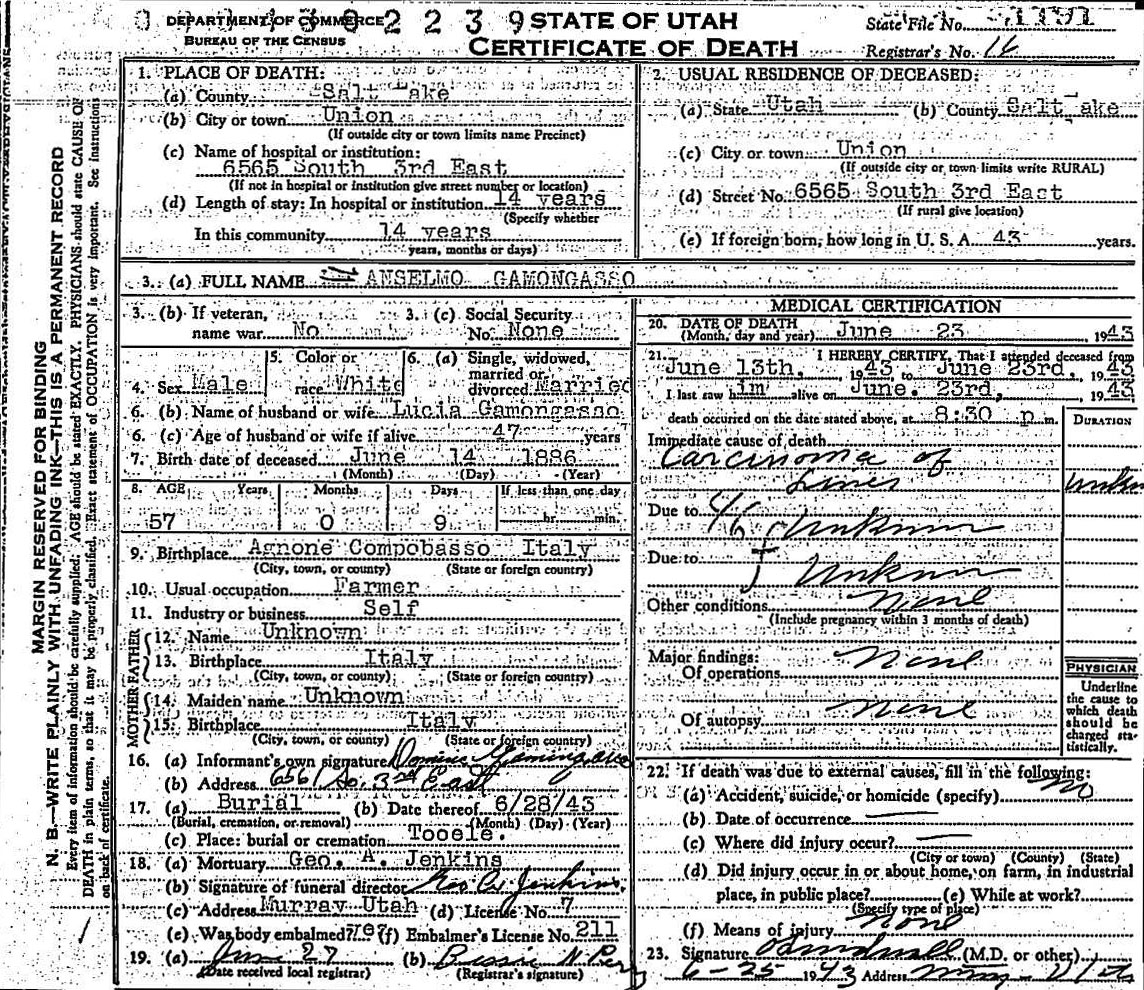 DEPARTMENT OF COMMERCE
BUREAU OF THE CENSUS
2 2 3 9
STATE OF UTAH
CERTIFICATE OF DEATH
State File No.
Registrar's No.
MARGIN RESERVED FOR BINDING
N. B.—WRITE PLAINLY WITH UNFADING INK—THIS IS A PERMANENT RECORD
Every item of information should be carefully supplied. AGE should be stated EXACTLY. PHYSICIANS should state CAUSE OF
DEATH in plain terms, so that it may be properly classified. Exact statement of OCCUPATION is very important. See instructions
on back of certificate.
1. PLACE OF DEATH:
(a) County Salt Lake
(b) City or town Union
(If outside city or town limits name Precinct)
(c) Name of hospital or institution:
6565 South 3rd East
(If not in hospital or institution give street number or location)
(d) Length of stay: In hospital or institution 14 years
(Specify whether
In this community 14 years
years, months or days)
2. USUAL RESIDENCE OF DECEASED:
(a) State Utah (b) County Salt Lake
(c) City or town Union
(If outside city or town limits write RURAL)
(d) Street No. 6565 South 3rd East
(If rural give location)
(e) If foreign born, how long in U. S. A. 43 years.
3. (a) FULL NAME ANSELMO GAMONGASSO
3. (b) If veteran, name war No
3. (c) Social Security No. None
4. Sex Male
5. Color or race White
6. (a) Single, widowed, married or divorced Married
6. (b) Name of husband or wife Lucia Gamongasso
6. (c) Age of husband or wife if alive 47 years
7. Birth date of deceased June 14 1886
(Month) (Day) (Year)
8. AGE Years Months Days If less than one day
57 0 9 hr. min.
9. Birthplace Agnone Compobasso Italy
(City, town, or county) (State or foreign country)
10. Usual occupation Farmer
11. Industry or business Self
FATHER
12. Name Unknown
13. Birthplace Italy
(City, town, or county) (State or foreign country)
MOTHER
14. Maiden name Unknown
15. Birthplace Italy
(City, town, or county) (State or foreign country)
16. (a) Informant's own signature
(b) Address 6561 So. 3rd East
17. (a) Burial (b) Date thereof 6/28/43
(Burial, cremation, or removal) (Month) (Day) (Year)
(c) Place: burial or cremation Tooele.
18. (a) Mortuary Geo. A. Jenkins
(b) Signature of funeral director Geo A Jenkins
(c) Address Murray Utah (d) License No. 7
(e) Was body embalmed? yes (f) Embalmer's License No. 211
19. (a) June 27 (b)
(Date received local registrar) (Registrar's signature)
MEDICAL CERTIFICATION
20. DATE OF DEATH June 23 , 1943
(Month, day and year)
21. I HEREBY CERTIFY, That I attended deceased from
June 13th, 1943 to June 23rd, 1943
I last saw him alive on June 23rd, 1943
death occurred on the date stated above, at 8:30 p m.
DURATION
Immediate cause of death
Carcinoma of
Liver
Due to Unknown
Due to Unknown
Other conditions None
(Include pregnancy within 3 months of death)
Major findings:
Of operations None
Of autopsy None
PHYSICIAN
Underline
the cause to
which death
should be
charged sta-
tistically.
22. If death was due to external causes, fill in the following:
(a) Accident, suicide, or homicide (specify) No
(b) Date of occurrence
(c) Where did injury occur?
(City or town) (County) (State)
(d) Did injury occur in or about home, on farm, in industrial
place, in public place? (e) While at work?
(Specify type of place)
(f) Means of injury None
23. Signature (M.D. or other)
6-25 1943 Address